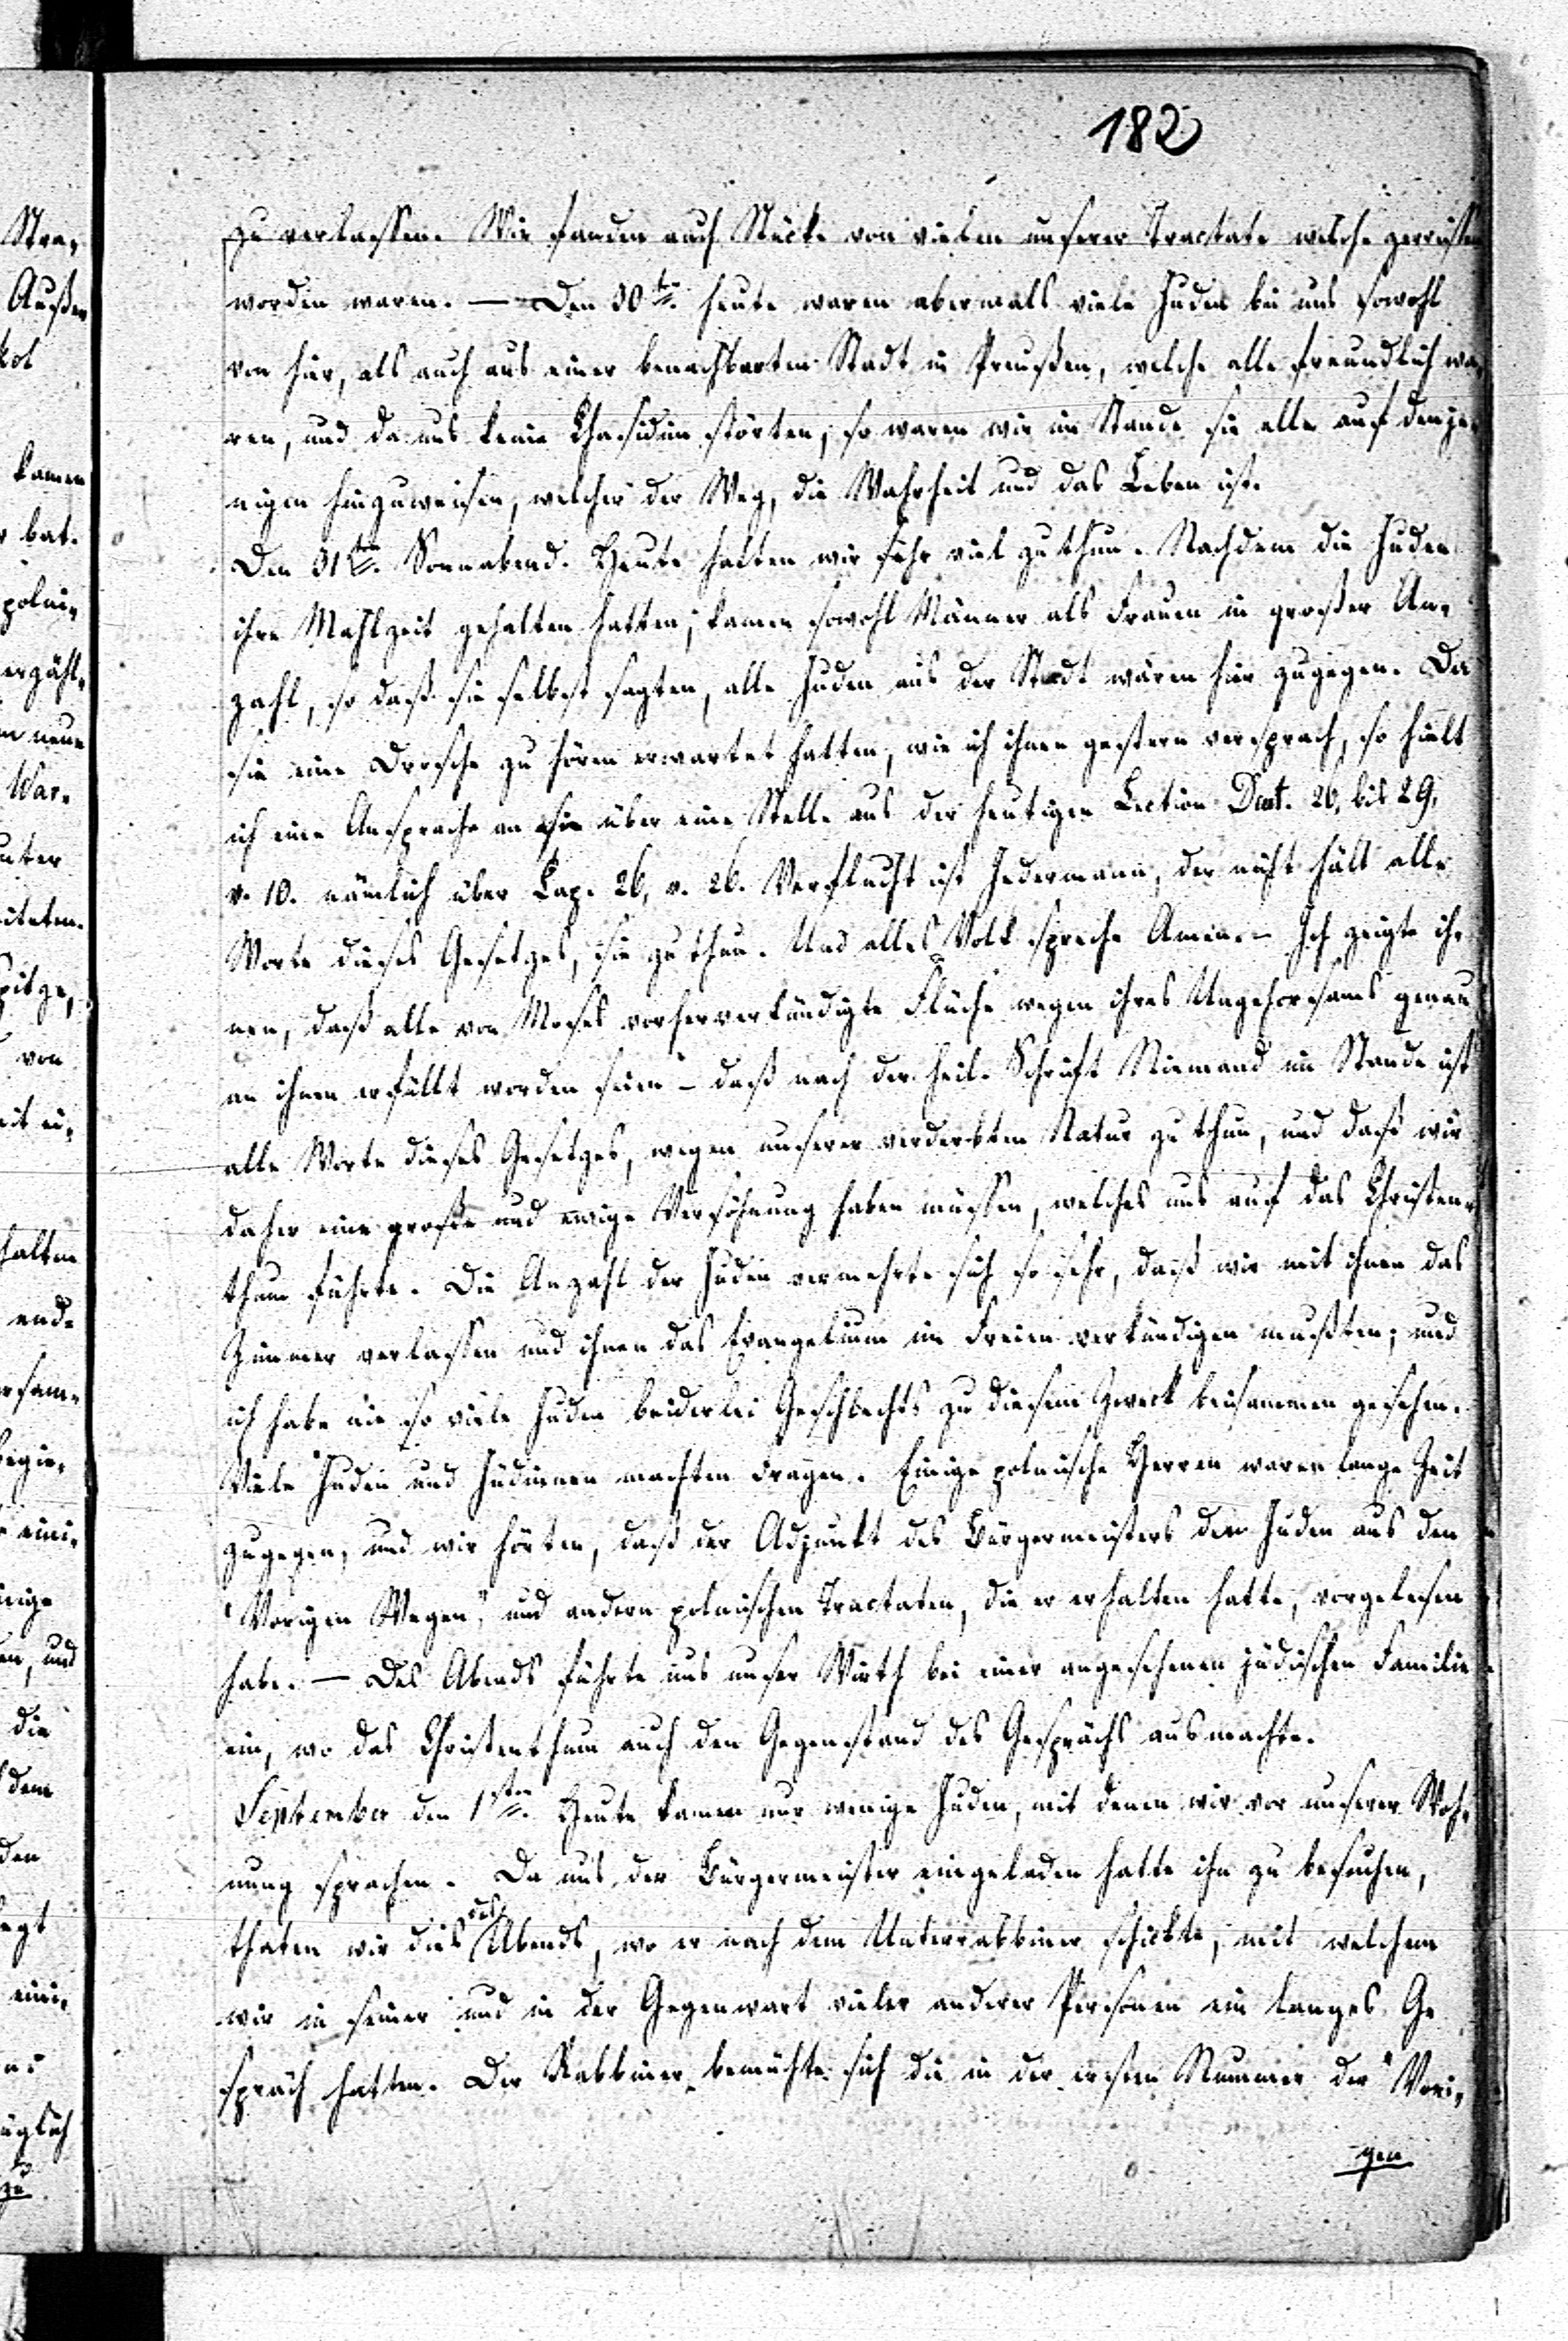 182
zu verlassen. Wir fanden auch Stücke von vielen unserer Tractate welche zerrissen
worden waren. — Den 30ten heute waren abermals viele Juden bei uns sowohl
von hier, als auch aus einer benachbarten Stadt in Preußen, welche alle freundlich wa-
ren, und da uns keine Chasidim störten, so waren wir im Stande sie alle auf denje-
nigen hinzuweisen, welcher der Weg, die Wahrheit und das Leben ist.
Den 31ten. Sonnabend. Heute hatten wir sehr viel zu thun. Nachdem die Juden
ihre Mahlzeit gehalten hatten, kamen sowohl Männer als Frauen in großer An-
zahl, so daß sie selbst sagten, alle Juden aus der Stadt wären hier zugegen. Da
sie eine Drosche zu hören erwartet hatten, wie ich ihnen gestern versprach, so hielt
ich eine Ansprache an sie über eine Stelle aus der heutigen Lection Deut. 26, bis 29,
v. 10. nämlich über Cap. 26, v. 26. Verflucht ist Jedermann, der nicht hält alle
Worte dieses Gesetzes, sie zu thun. Und alles Volk spreche Amen. – Ich zeigte ih-
nen, daß alle von Moses vorherverkündigte Flüche wegen ihres Ungehorsams genau
an ihnen erfüllt worden seien – daß nach der heil. Schrift Niemand im Stande ist
alle Worte dieses Gesetzes, wegen unserer verderbten Natur zu thun, und daß wir
daher eine große und ewige Versöhnung haben müssen, welches uns auf das Christen-
thum führte. Die Anzahl der Juden vermehrte sich so sehr, daß wir mit ihnen das
Zimmer verlassen und ihnen das Evangelium im Freien verkündigen mußten; und
ich habe nie so viele Juden beiderlei Geschlechts zu diesem Zweck beisammen gesehen.
Viele Juden und Jüdinnen machten Fragen. Einige polnische Herren waren lange Zeit
zugegen, und wir hörten, daß der Adjunkt des Bürgermeisters den Juden aus den
"Vorigen Wegen" und andern polnischen Tractaten, die er erhalten hatte, vorgelesen
habe. — Des Abends führte uns unser Wirth bei einer angesehenen jüdischen Familie
ein, wo das Christenthum auch den Gegenstand des Gesprächs ausmachte.
September den 1sten. Heute kamen nur wenige Juden, mit denen wir vor unserer Woh-
nung sprachen. Da uns der Bürgermeister eingeladen hatte ihn zu besuchen,
thaten wir dies des Abends, wo er nach dem Unterrabbiner schickte, mit welchem
wir in seiner und in der Gegenwart vieler anderer Personen ein langes Ge
spräch hatten. Der Rabbiner bemühte sich die in der ersten Nummer der "Vori-
gen